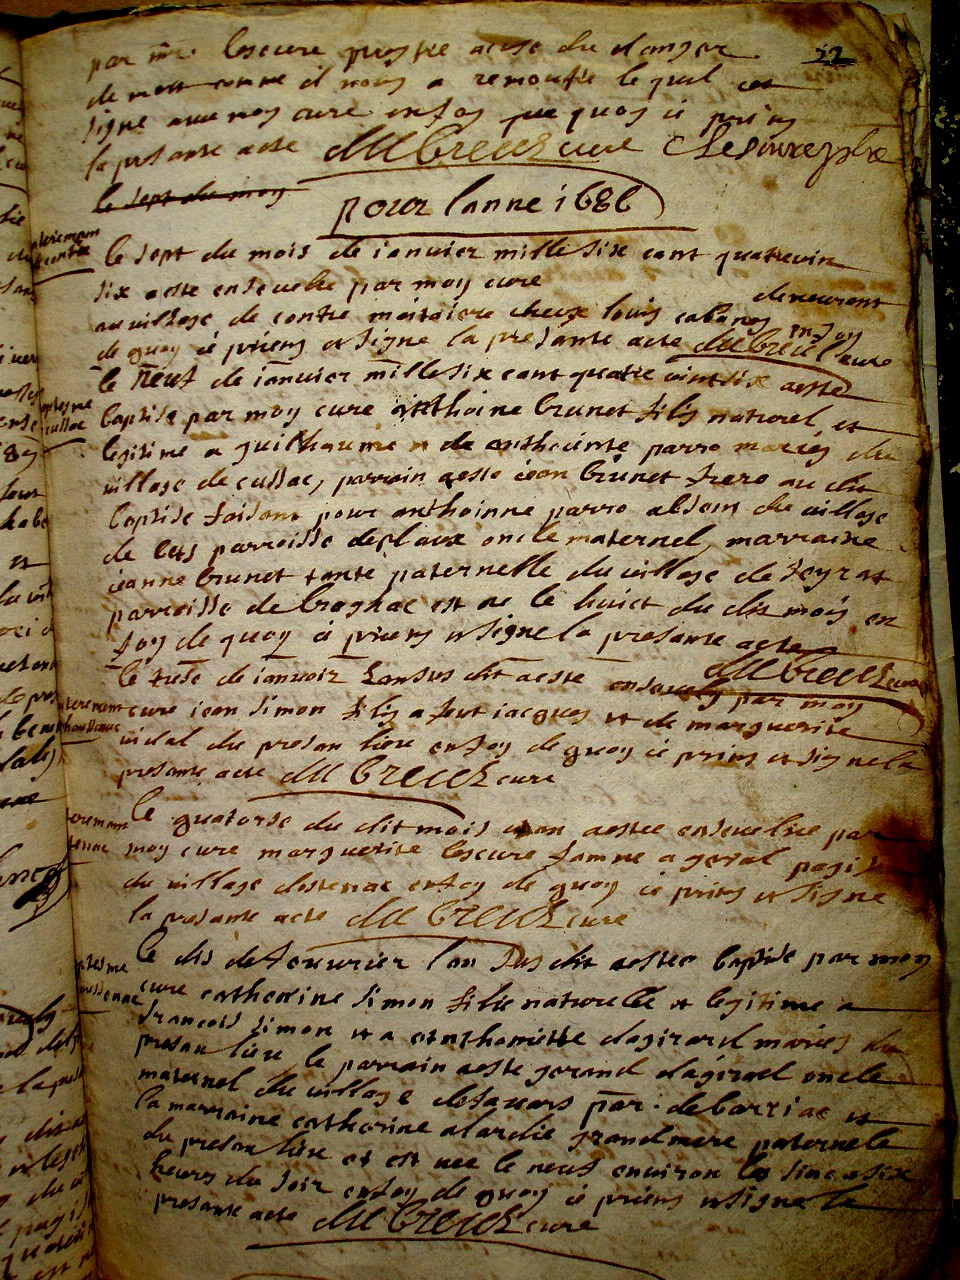 22
par mr. lescure prestre acose du danger
de mort comme il nous a remoutre le quel est
signe avec moy cure en foy que quoy ie priens
la presante acte duBreuil cure Lescure pbre
le sept du moy
pour lanne 1686
enteremant
contie
le sept du mois de ianvier mille six cent quatrevin
six aeste ensevelie par moy cure
demeurant
au village de contie cheux louis cabanes
en foy
de quoy ie priens et signe la presante acte duBreuil cure
le neuf de ianvier mille six cent quatre vint six aeste
baptesme
cussac
baptise par moy cure anthoine brunet fils naturel et
legitime a guilhaume et de anthoinete parro maries du
village de cussac, parrain aeste iean brunet frere au dit
baptise faisant pour anthoinne parro absent du village
de parroisse deplaux oncle maternel, marraine
ieanne brunet tante paternelle du village de feyrat
parroisse de bragnac est ne le huict du dit mois en
foy de quoy ie priens et signe la presante acte
duBreuil cure
le trese de ianvoir lansus dit aeste ensevely par moy
enteremant
cure iean simon fils a feut iacques et de marguerite
vidal du presan lieu en foy de quoy ie priens et signe la
presante acte duBreuil cure
le quatorse du dit mois aestee ensevelie par
enteremant
moy cure marguerite lescure famme a geral pagis
du village dostenac en foy de quoy ie priens et signe
la presante acte duBreuil cure
le dis de feuvrier lan sus dit aestee baptise par moy
baptesme
cure catherine simon fille naturelle et legitime a
francois simon et a anthoinette dagirard maries du
presan lieu le parrain aeste gerand dagirad oncle
maternel du village defavars par. de barriac et
la marraine catherine alardie grandmere paternele
du presan lieu et est nee le neuf environ les sinc a six
heurs du soir en foy de quoy ie priens et signe la
presante acte duBreuil cure